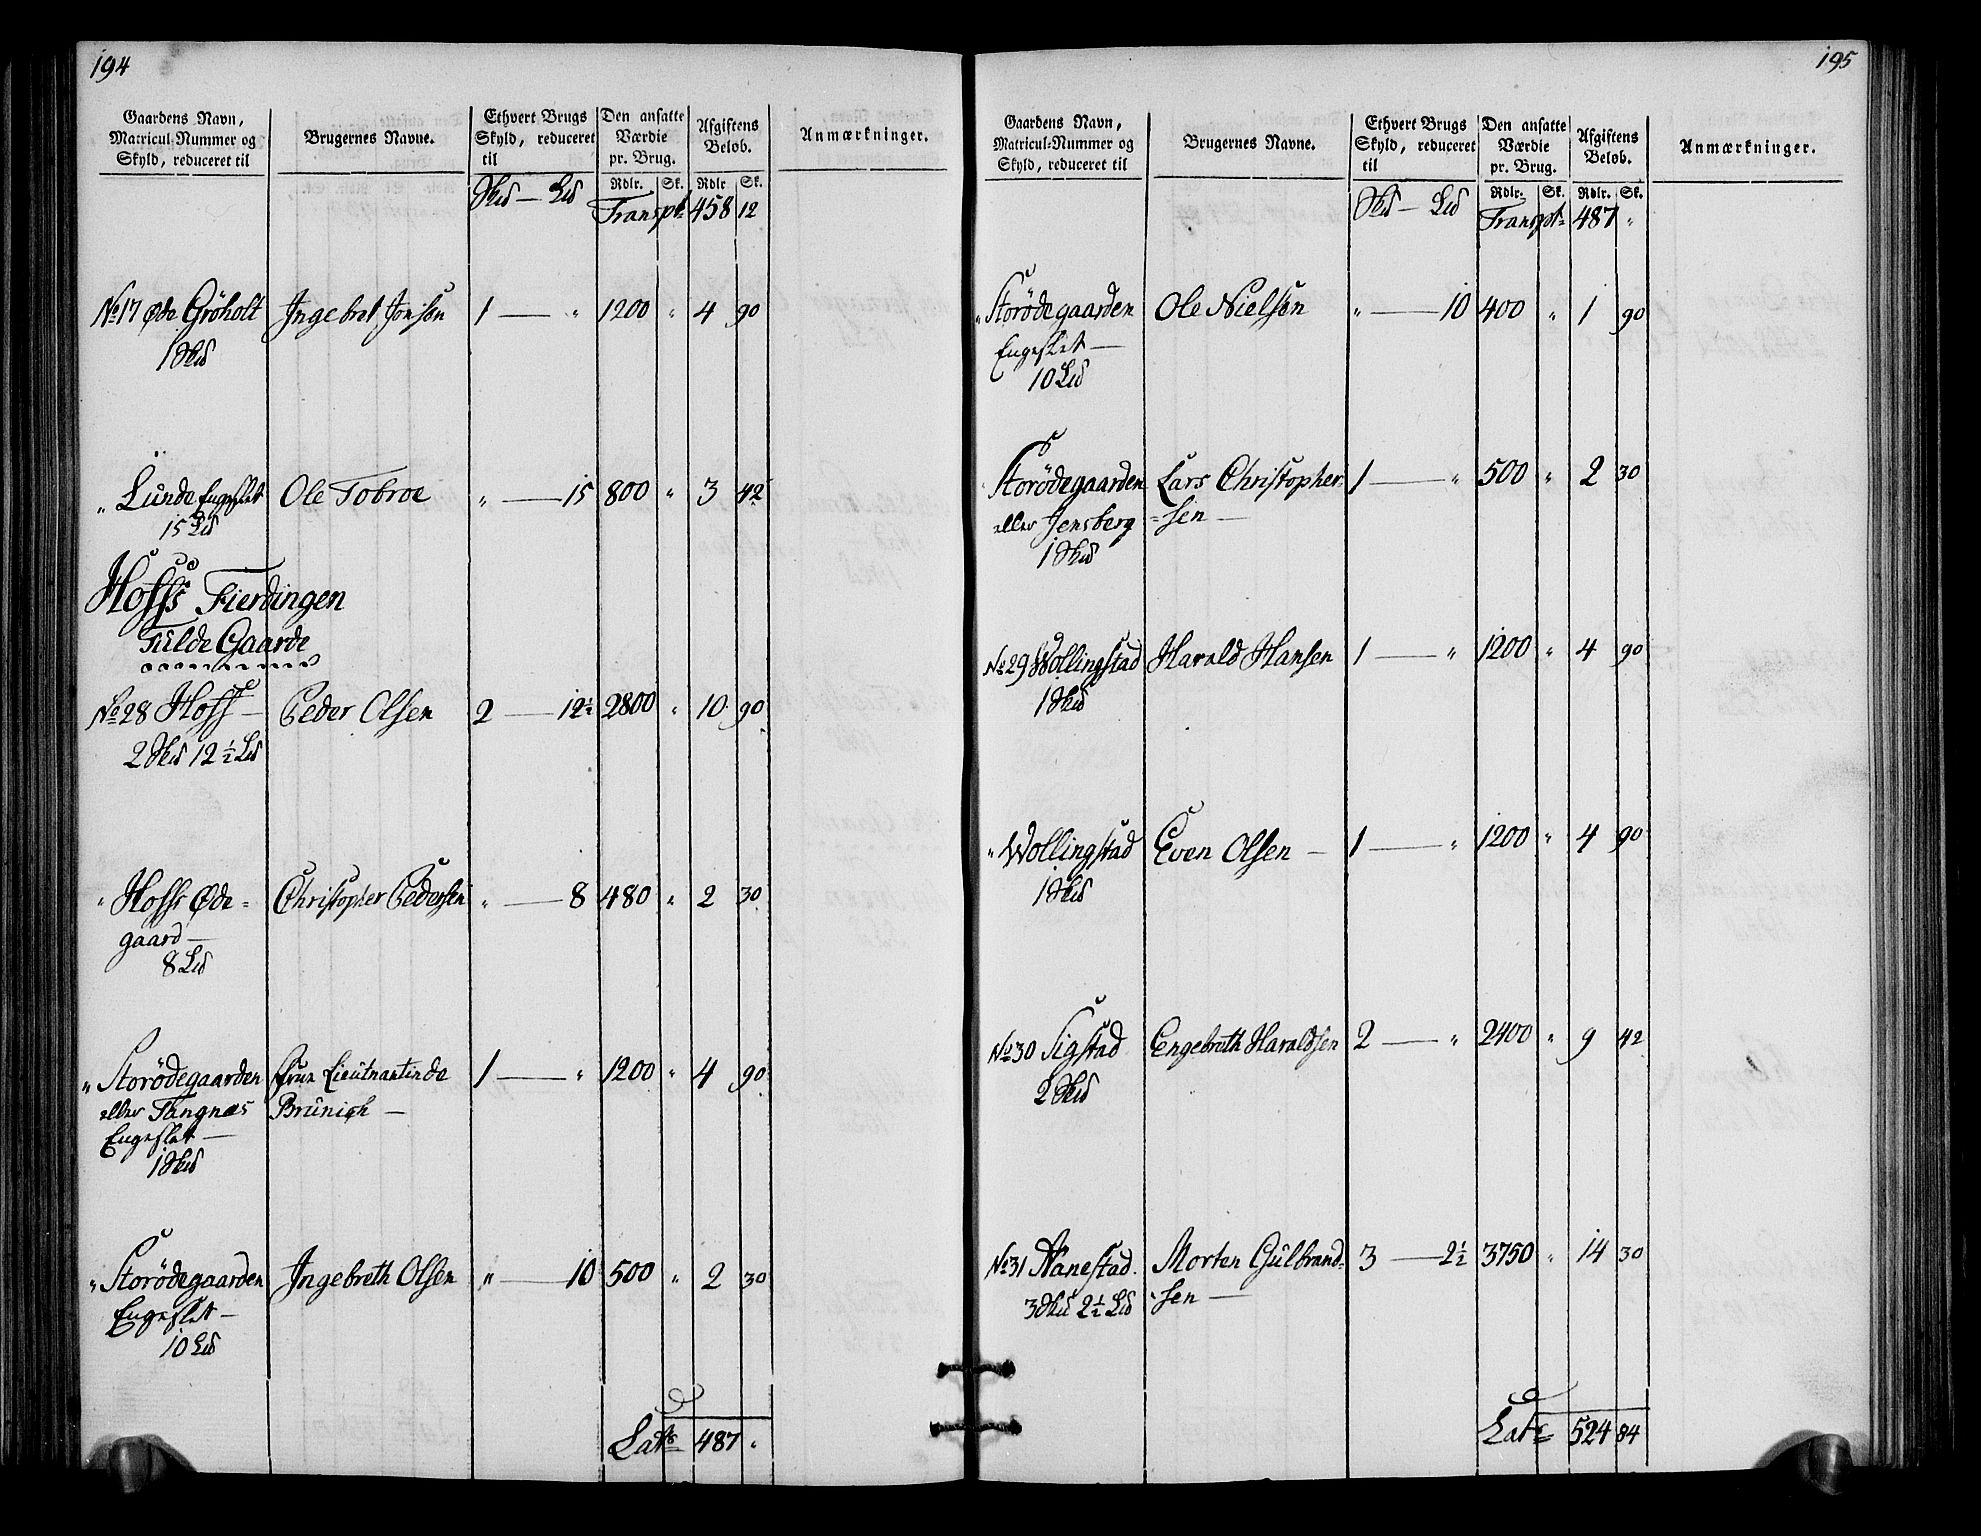 194
Gaardens Navn, Matricul-Nummer og Skyld, reduceret til | Brugernes Navne. | Ethvert Brugs Skyld, reduceret til | Den ansatte Værdie pr. Brug. | Afgiftens Beløb. | Anmærkninger.
Rdlr. | Sk. | Rdlr. | Sk.
Skd — Ld | Transpt: | 458 | 12
No 17 Øde Gröholt | Ingebret Jonsen | 1 — " | 1200 | " | 4 | 90
1 Skd
" Lunde Engeslet | Ole Tobroe | " — 15 | 800 | " | 3 | 42
15 Ld
Hoffs Fierdingen
Fulde Gaarde
No 28 Hoff — | Peder Olsen | 2 — 12½ | 2800 | " | 10 | 90
2 Skd 12½ Ld
" Hoffs Øde= | Christopher Pedersen | " — 8 | 480 | " | 2 | 30
gaard —
8 Ld
" Storödegaarden | Frue Lieutnantinde | 1 — " | 1200 | " | 4 | 90
eller Tangnæs | Brünich —
Engeslet —
1 Skd
" Storödegaarden | Ingebreth Olsen | " — 10 | 500 | " | 2 | 30
Engeslet —
10 Ld
Lats | 487 | "
195
Gaardens Navn, Matricul-Nummer og Skyld, reduceret til | Brugernes Navne. | Ethvert Brugs Skyld, reduceret til | Den ansatte Værdie pr. Brug. | Afgiftens Beløb. | Anmærkninger.
Rdlr. | Sk. | Rdlr. | Sk.
Skd — Ld | Transpt= | 487 | "
" Storödegaarden | Ole Nielsen | " — 10 | 400 | " | 1 | 90
Engeslet —
10 Ld
" Storödegaarden | Lars Christopher= | 1 — " | 500 | " | 2 | 30
eller Jensberg | =sen —
1 Skd
No 29 Wollingstad | Harald Hansen | 1 — " | 1200 | " | 4 | 90
1 Skd
" Wollingstad | Even Olsen — | 1 — " | 1200 | " | 4 | 90
1 Skd
No 30 Sigstad | Engebreth Haraldsen | 2 — " | 2400 | " | 9 | 42
2 Skd
No 31 Nanestad. | Morten Gulbrand= | 3 — 2½ | 3750 | " | 14 | 30
3 Skd 2½ Ld | =sen —
Lats | 524 | 84